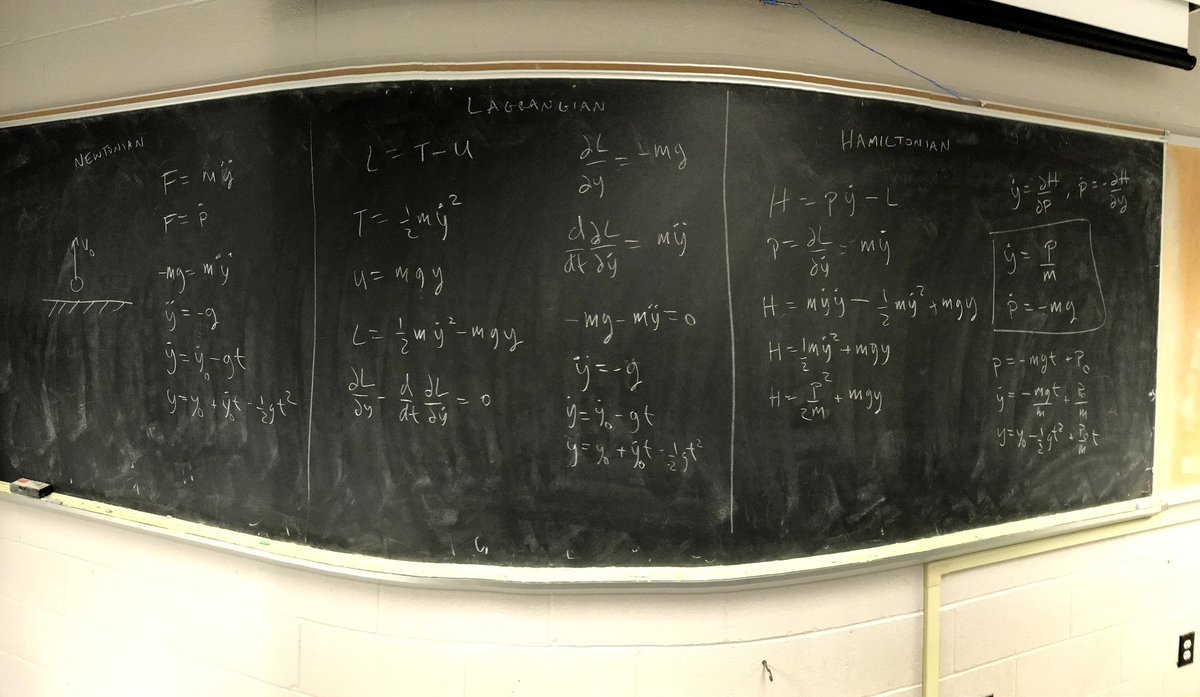 NEWTONIAN
v₀
F = mÿ
F = ṗ
-mg = mÿ
ÿ = -g
ẏ = ẏ₀ - gt
y = y₀ + ẏ₀t - ½gt²
LAGRANGIAN
L = T - U
T = ½mẏ²
U = mgy
L = ½mẏ² - mgy
∂L/∂y - d/dt ∂L/∂ẏ = 0
∂L/∂y = -mg
d/dt ∂L/∂ẏ = mÿ
-mg - mÿ = 0
ÿ = -g
ẏ = ẏ₀ - gt
y = y₀ + ẏ₀t - ½gt²
HAMILTONIAN
H = pẏ - L
p = ∂L/∂ẏ = mẏ
H = mẏẏ - ½mẏ² + mgy
H = ½mẏ² + mgy
H = p²/2m + mgy
ẏ = ∂H/∂p, ṗ = -∂H/∂y
ẏ = p/m
ṗ = -mg
p = -mgt + p₀
ẏ = -mgt/m + p₀/m
y = y₀ - ½gt² + p₀/m t